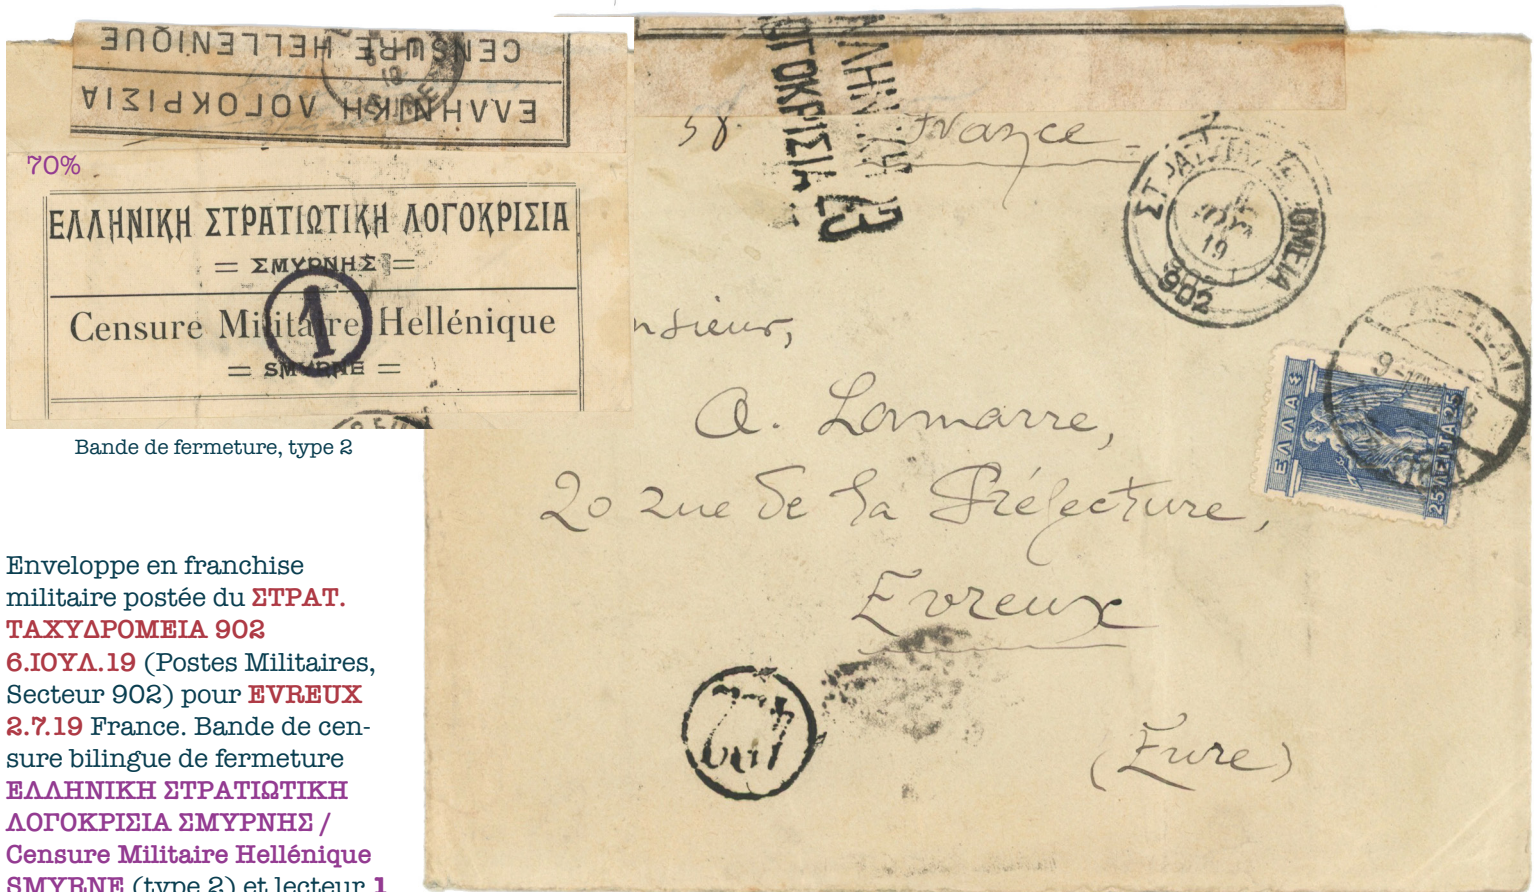 CENSURE HELLENIQUE
ΕΛΛΗΝΙΚΗ ΛΟΓΟΚΡΙΣΙΑ
70%
ΕΛΛΗΝΙΚΗ ΣΤΡΑΤΙΩΤΙΚΗ ΛΟΓΟΚΡΙΣΙΑ
= ΣΜΥΡΝΗΣ =
1
Censure Militaire Hellénique
= SMYRNE =
Bande de fermeture, type 2
Enveloppe en franchise
militaire postée du ΣΤΡΑΤ.
ΤΑΧΥΔΡΟΜΕΙΑ 902
6.ΙΟΥΛ.19 (Postes Militaires,
Secteur 902) pour EVREUX
2.7.19 France. Bande de cen-
sure bilingue de fermeture
ΕΛΛΗΝΙΚΗ ΣΤΡΑΤΙΩΤΙΚΗ
ΛΟΓΟΚΡΙΣΙΑ ΣΜΥΡΝΗΣ /
Censure Militaire Hellénique
SMYRNE (type 2) et lecteur 1
ΛΛΗΝΙΚΗ
ΟΓΟΚΡΙΣΙΑ 23
France
19
902
nsieur,
A. Lamarre,
20 rue de la Préfecture,
Evreux
(Eure)
ΕΛΛΑΣ
25 ΛΕΠΤΑ 25